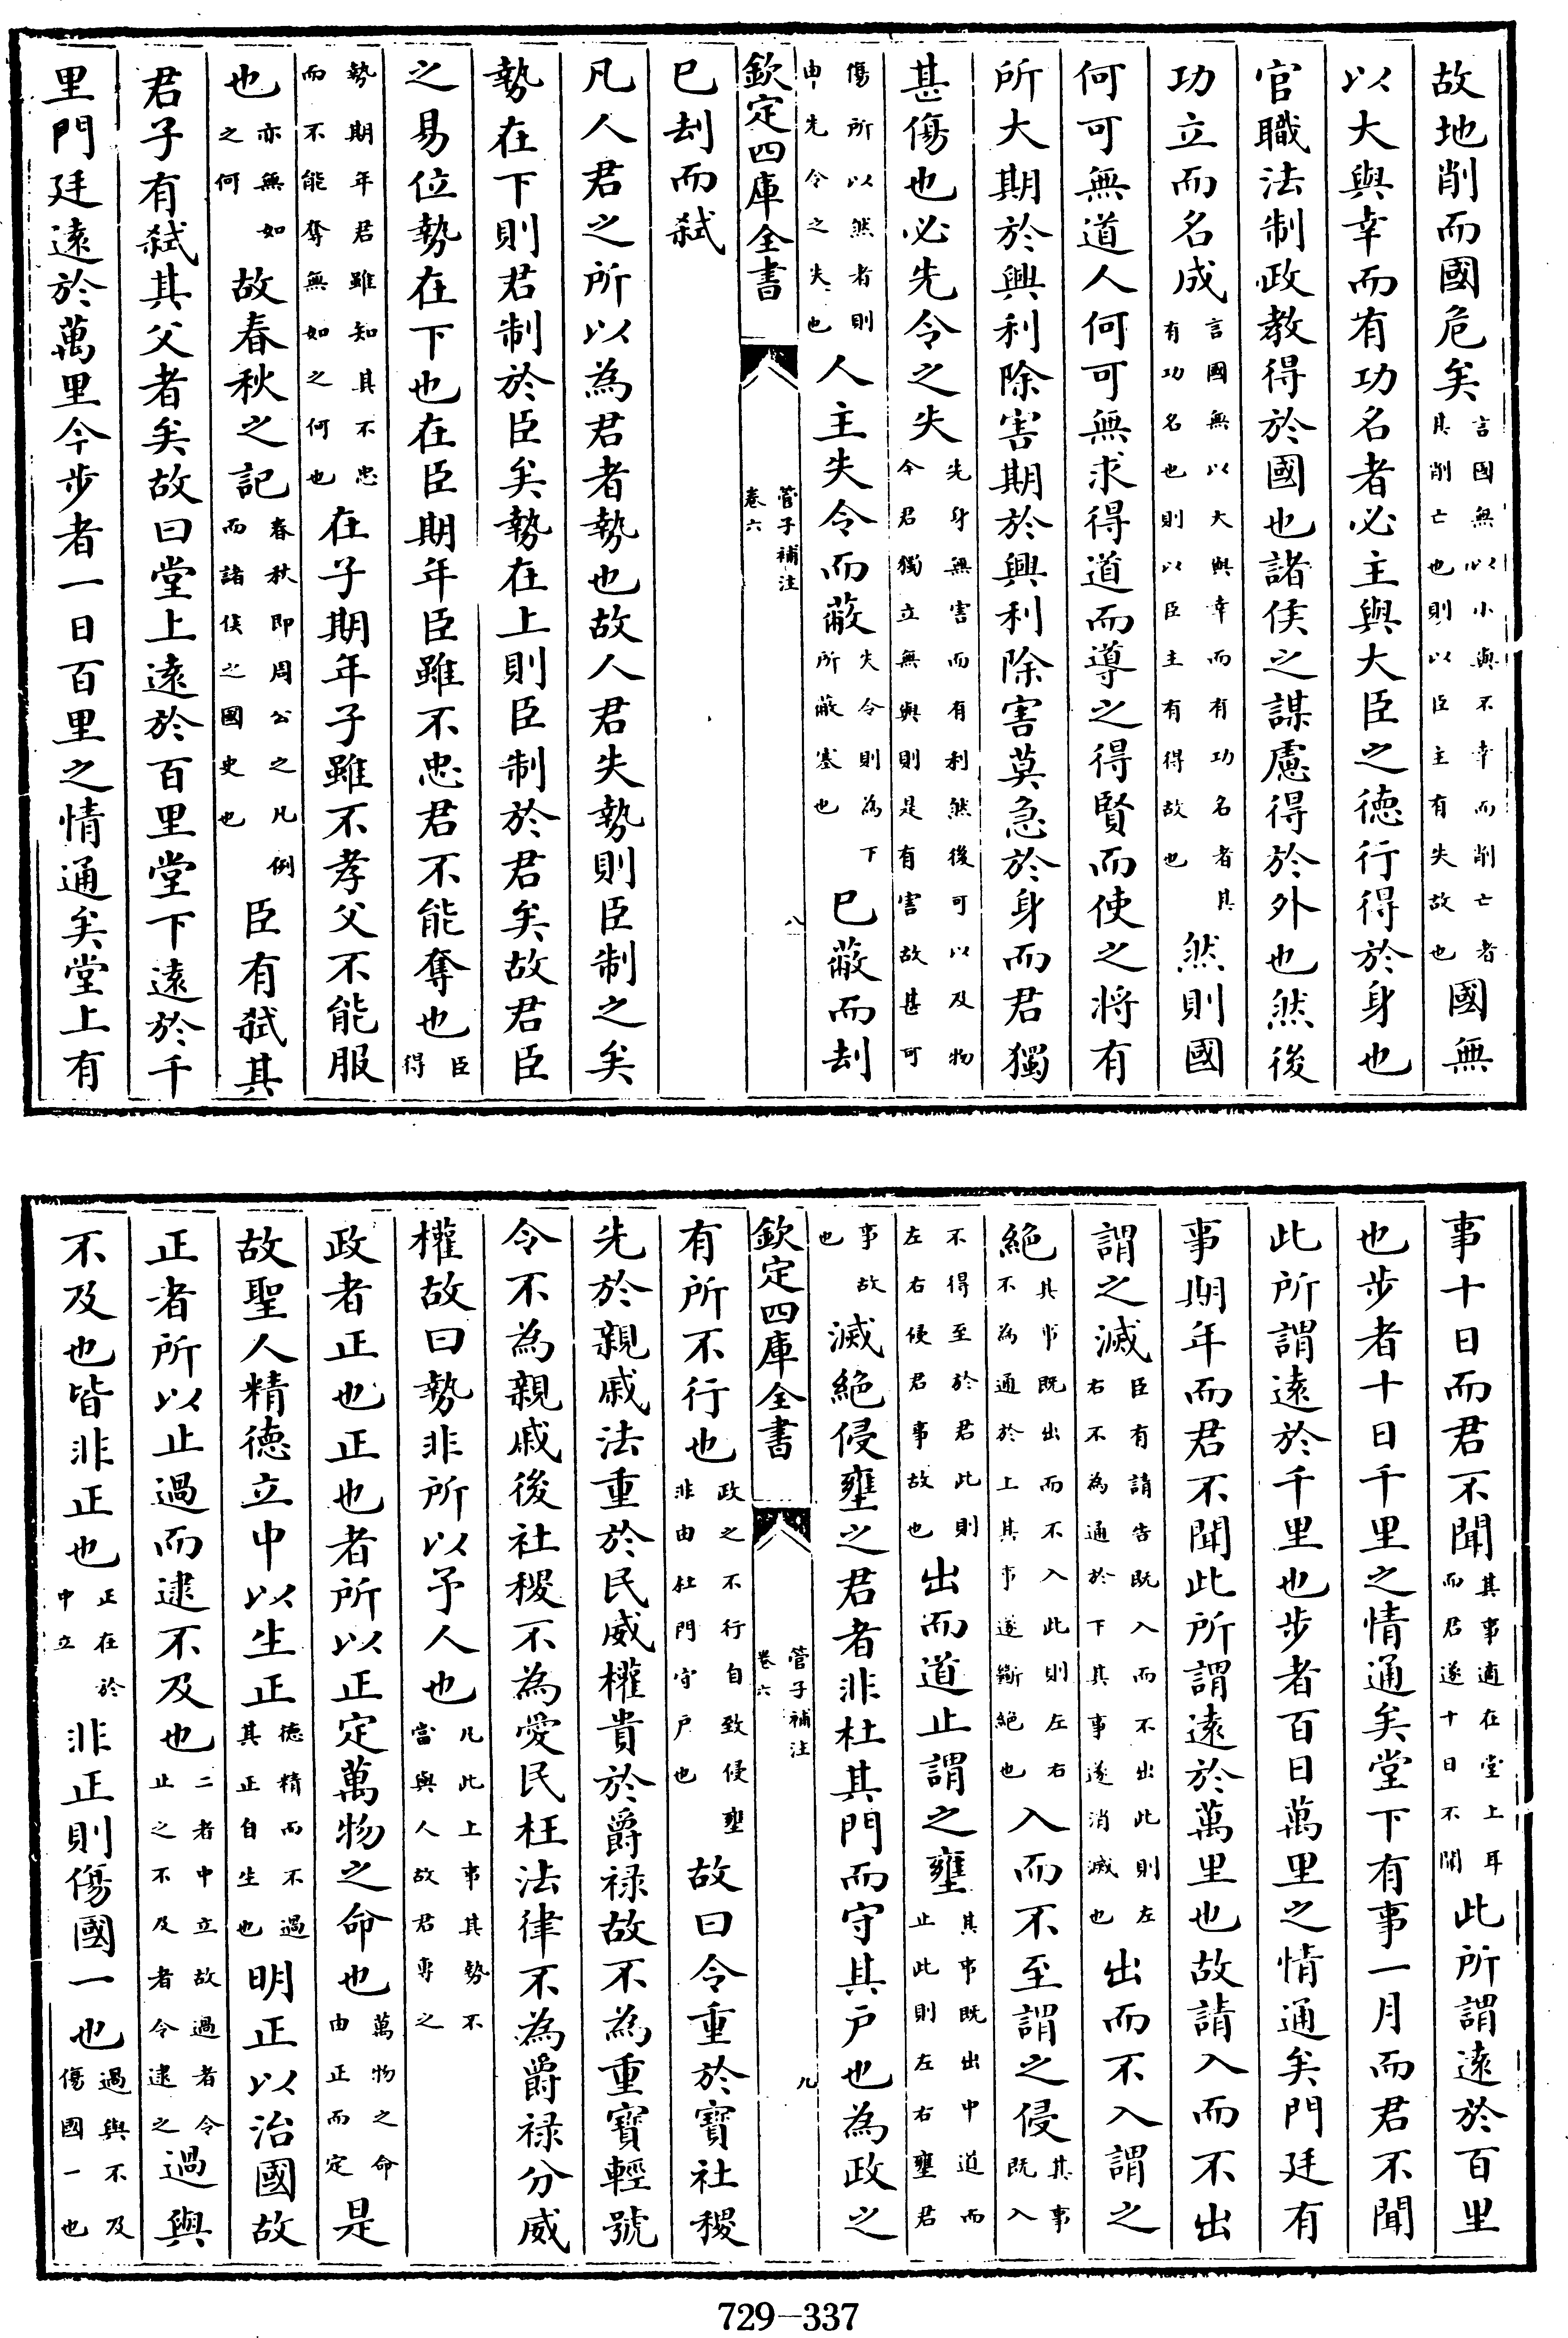 故地削而國危矣言國無以小與不幸而削亡者其削亡也則以臣主有失故也國無
以大與幸而有功名者必主與大臣之德行得於身也
官職法制政教得於國也諸侯之謀慮得於外也然後
功立而名成言國無以大與幸而有功名者其有功名也則以臣主有得故也然則國
何可無道人何可無求得道而導之得賢而使之將有
所大期於興利除害期於興利除害莫急於身而君獨
甚傷也必先令之失先身無害而有利然後可以及物令君獨立無與則是有害故甚可
傷所以然者則由先令之失也人主失令而蔽失令則為下所蔽塞也已蔽而刦
欽定四庫全書
管子補注
卷六
八
已刦而弑
凡人君之所以為君者勢也故人君失勢則臣制之矣
勢在下則君制於臣矣勢在上則臣制於君矣故君臣
之易位勢在下也在臣期年臣雖不忠君不能奪也臣得
勢期年君雖知其不忠而不能奪無如之何也在子期年子雖不孝父不能服
也亦無如之何故春秋之記春秋即周公之凡例而諸侯之國史也臣有弑其
君子有弑其父者矣故曰堂上遠於百里堂下遠於千
里門廷遠於萬里今步者一日百里之情通矣堂上有
事十日而君不聞其事適在堂上耳而君遂十日不聞此所謂遠於百里
也步者十日千里之情通矣堂下有事一月而君不聞
此所謂遠於千里也步者百日萬里之情通矣門廷有
事期年而君不聞此所謂遠於萬里也故請入而不出
謂之滅臣有請告既入而不出此則左右不為通於下其事遂消滅也出而不入謂之
絕其事既出而不入此則左右不為通於上其事遂斷絕也入而不至謂之侵其事既入
不得至於君此則左右侵君事故也出而道止謂之壅其事既出中道而止此則左右壅君
事故也滅絕侵壅之君者非杜其門而守其戶也為政之
欽定四庫全書
管子補注
卷六
九
有所不行也政之不行自致侵壅非由杜門守戶也故曰令重於寶社稷
先於親戚法重於民威權貴於爵祿故不為重寶輕號
令不為親戚後社稷不為愛民枉法律不為爵祿分威
權故曰勢非所以予人也凡此上事其勢不當與人故君專之
政者正也正也者所以正定萬物之命也萬物之命由正而定是
故聖人精德立中以生正德精而不過其正自生也明正以治國故
正者所以止過而逮不及也二者中立故過者令止之不及者令逮之過與
不及也皆非正也正在於中立非正則傷國一也過與不及傷國一也
729-337